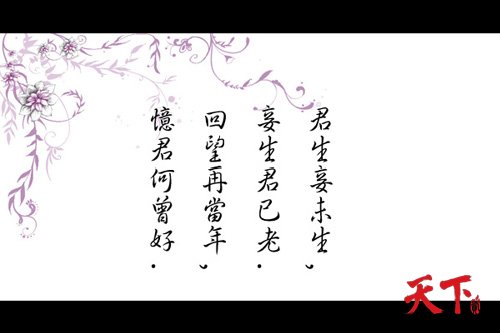 君生妾未生,
妾生君已老.
回望再當年,
憶君何曾好.
天下